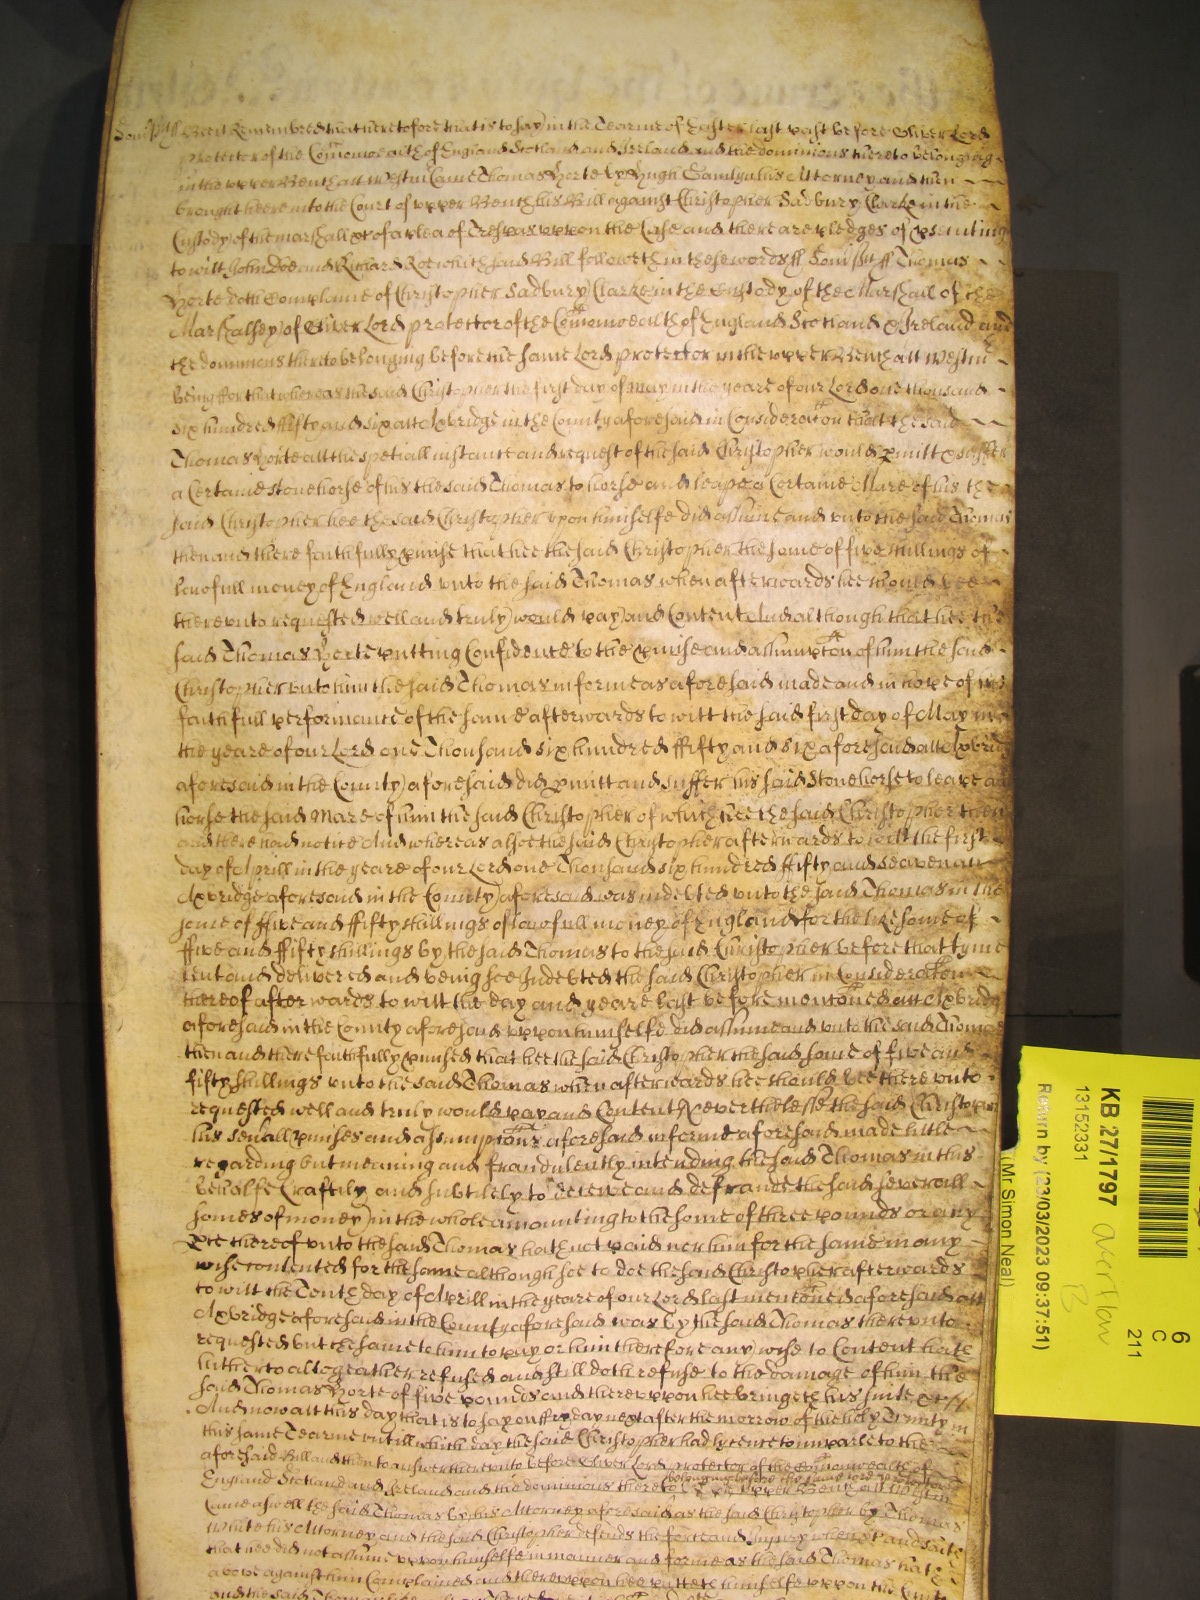 Som̃s̃tt ss Bee it Remembred that heretofore that is to say in the Tearme of Easter last past before Oliver Lord
Protector of the Com̃onwealth of England Scotland and Ireland and the dominions thereto belonging
in the upper Bench att Westm̃ came Thomas Yorte by Hugh his Attorney and then
brought heere into the Court of upper Bench his Bill against Christopher Sadbury Clarke in the
Custody of the marshall &c of a plea of Trespas uppon the Case and there are pledges of p̱secuting
to witt John Doe and Richard Roe which said Bill followeth in these words ss Som̃s̃tt ss Thomas
Yorte doth Complaine of Christopher Sadbury Clarke in the Custody of the Marshall of the
Marshalsey of Oliver Lord protector of the Com̃onwealth of England Scotland & Ireland and
the dominions thereto belonging before the same Lord protector in the upper Bench att Westm̃
being for that whereas the said Christopher the first day of May in the yeare of our Lord one thousand
six hundred fifty and six att Axbridge in the County aforesaid in Consideracõn that the said
Thomas Yorte att the speciall instance and request of the said Christopher would p̱mitt & suffer
a Certaine stonehorse of his the said Thomas to horse and leape a Certaine Mare of his the
said Christopher hee the said Christopher upon himselfe did assume and unto the said Thomas
then and there faithfully p̱mise that hee the said Christopher the some of five shillings of
lawfull money of England unto the said Thomas when afterwards hee should bee
thereunto requested well and truly would pay and Content And although that hee the
said Thomas Yorte putting Confidence to the p̱mise and assumpcõn of him the said
Christopher unto him the said Thomas in forme as aforesaid made and in hope of his
faithfull performance of the same afterwards to witt the said first day of May in
the yeare of our Lord one Thousand six hundred fifty and six aforesaid att Axbridge
aforesaid in the County aforesaid did p̱mitt and suffer his said Stonehorse to leape and
horse the said Mare of him the said Christopher of which hee the said Christopher then
and there had notice And whereas alsoe the said Christopher afterwards to witt the first
day of Aprill in the yeare of our Lord one Thousand six hundred fifty and seaven att
Axbridge aforesaid in the County aforesaid was indebted unto the said Thomas in the
some of five and fifty shillings of lawfull money of England for the like some of
five and fifty shillings by the said Thomas to the said Christopher before that tyme
lent and delivered and being soe Indebted the said Christopher in Consideracõn
thereof afterwards to witt the day and yeare last before mencõned att Axbridge
aforesaid in the County aforesaid uppon himselfe did assume and unto the said Thomas
then and there faithfully p̱mised that hee the said Christopher the said some of five and
fifty shillings unto the said Thomas when afterwards hee should bee there unto
requested well and truly would pay and Content Neverthelesse the said Christopher
his sev̄all p̱mises and assumpcõns aforesaid in forme aforesaid made little
regarding but meaning and fraudulently intending the said Thomas in this
behalfe Craftily and subtilely to deceive and defraude the said severall
somes of money in the whole amounting to the some of three pounds or any
p̱te thereof unto the said Thomas hath not paid nor him for the same in any
wise contented for the same although soe to doe the said Christopher afterwards
to witt the Tenth day of Aprill in the yeare of our Lord last mencõned aforesaid att
Axbridge aforesaid in the County aforesaid was by the said Thomas thereunto
requested but the same to him to pay or him therefore any wise to Content hath
hitherto altogeather refused and still doth refuse to the damage of him the
said Thomas Yorte of five pounds and thereuppon hee bringeth his suite &c //
And now att this day that is to say on ffryday next after the morrow of the holy Trinity in
this same Tearme untill which day the said Christopher had lycence to imparle to the
aforesaid Bill and then to answer thereunto before Oliver Lord protector of the Com̃onwealth of
England Scotland and Ireland and the dominions thereto belonging before the same lord protector in the upper Bench att Westm̃
Came aswell the said Thomas by his Attorney aforesaid as the said Christopher by Thomas
White his Attorney and the said Christopher defends the force and Injury when &c and saith
that hee did not assume uppon himselfe in manner and forme as the said Thomas hath
above against him Complained and thereuppon hee putteth himselfe uppon the Country
and the said Thomas
KB 27/1797
13152331
Return by (23/03/2023 09:37:51)
(Mr Simon Neal)
overflow
B
6
C
211